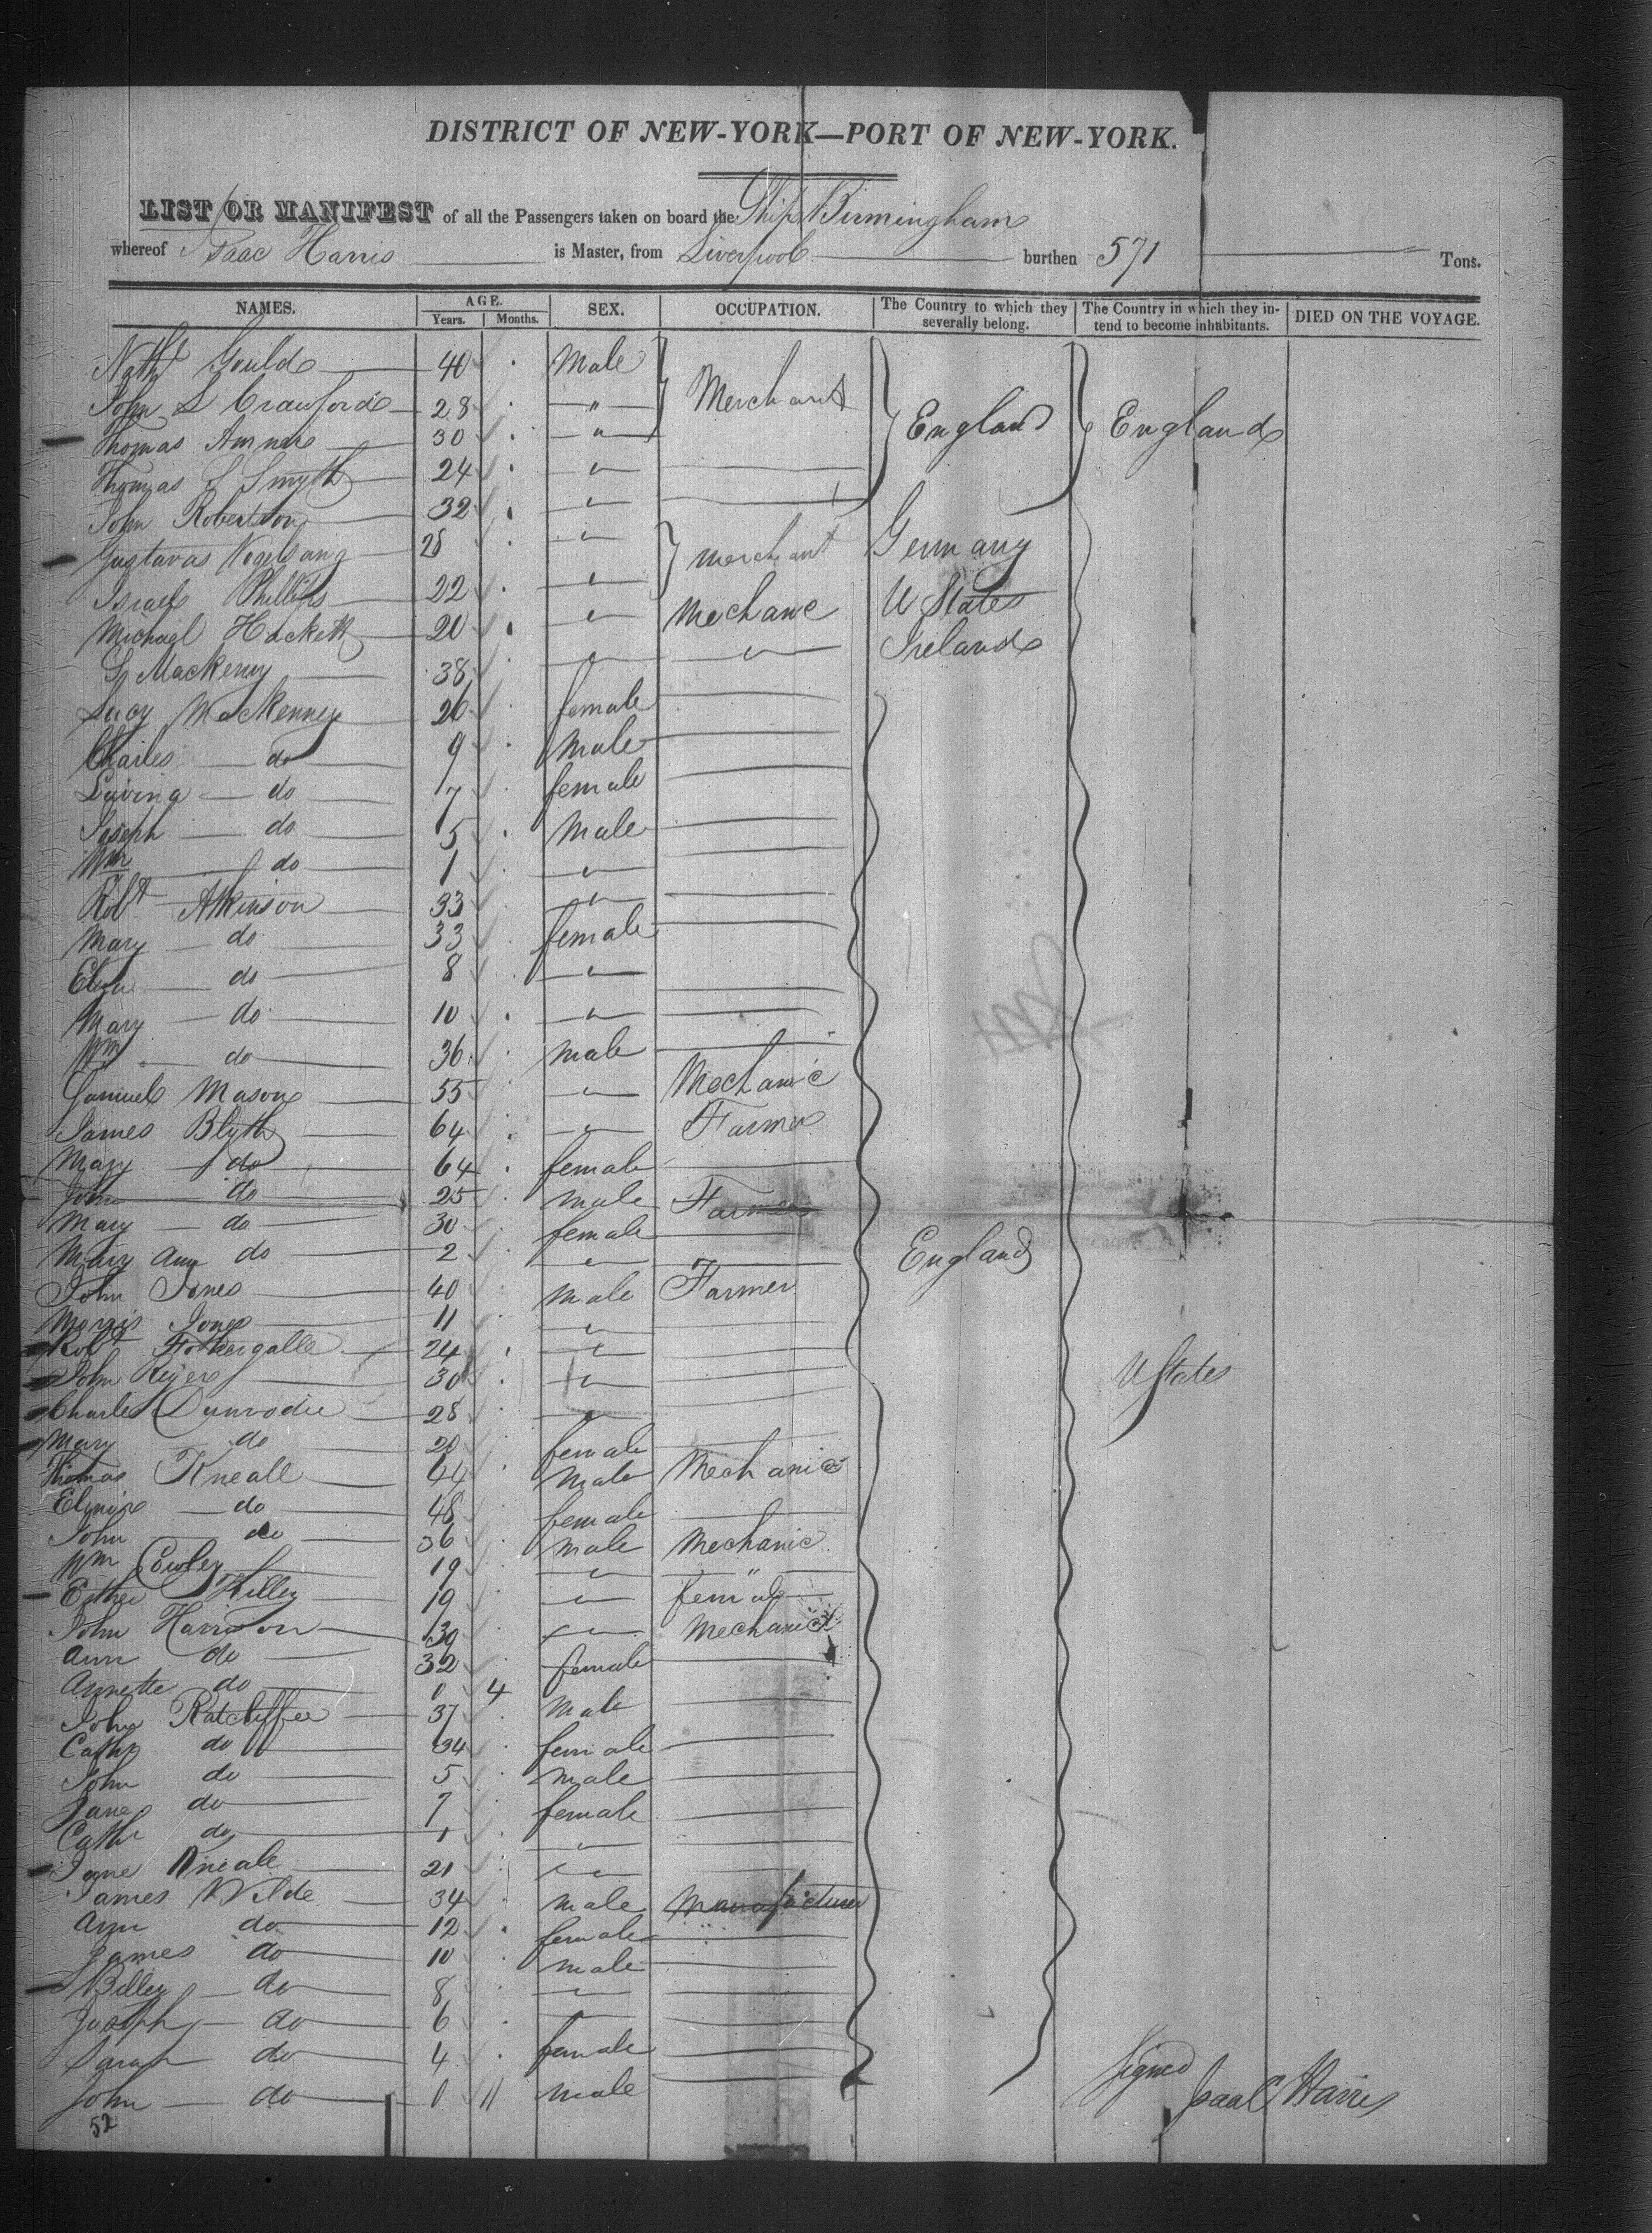 DISTRICT OF NEW-YORK—PORT OF NEW-YORK.
LIST OR MANIFEST of all the Passengers taken on board the Ship Birmingham
whereof Isaac Harris is Master, from Liverpool burthen 571 Tons.
NAMES. AGE. Years. Months. SEX. OCCUPATION. The Country to which they severally belong. The Country in which they intend to become inhabitants. DIED ON THE VOYAGE.
Nathl Gould 40 Male Merchant England England
John S Crawford 28 "
Thomas 30 "
Thomas S Smyth 24 "
John Robertson 32 "
Gustavas Vogelsang 28 " merchant Germany
Israel Phillips 22 " U States
Michael Hackett 20 " Mechanic Ireland
G Mackenny 38 " "
Lucy MacKenney 26 female
Charles do 9 Male
do 7 female
Joseph do 5 Male
Wm do 1 "
Robt Atkinson 33 "
Mary do 33 female
do 8 "
Mary do 10 "
Wm do 36 male
Samuel Mason 55 " Mechanic
James Blyth 64 " Farmer
Mary do 64 female
John do 25 male Farmer
Mary do 30 female
Mary Ann do 2 " England
John Jones 40 male Farmer
Morris Jones 11 "
Robt Fothergalle 24 "
John 30 " U States
Charles 28 "
Mary do 20 female
Thomas Kneall 44 Male Mechanic
do 48 female
John do 36 male Mechanic
Wm 19 " "
Esther Killey 19 " female
John Harrison 39 " Mechanic
Ann do 32 female
Annette do 0 4
John Ratcliffee 37 Male
Cathe do 34 female
John do 5 male
Jane do 7 female
Cathe do 1 "
Jane Kneale 21 "
James Wilde 34 male Manufacturer
Ann do 12 female
James do 10 male
Billey do 8 "
Joseph do 6 "
Sarah do 4 female
John do 0 11 male
Signed Isaac Harris
52